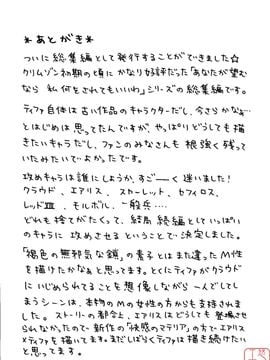 *あとがき*
ついに総集編として発行することができました☆
クリムゾン初期の頃にかなり好評だった「あなたが望む
なら 私 何をされてもいいわ」シリーズの総集編です。
ティファ自体は古い作品のキャラクターだし、今さらかなぁ…
とはじめは思ってたんですが、やっぱりどうしても描
きたいキャラだし、ファンのみなさんも根強く残って
いたみたいでよかったです。
攻めキャラは誰にしようか、すご──く迷いました!
クラウド、エアリス、スカーレット、セフィロス、
レッドⅩⅢ、モルボル、一般兵…
どれも捨てがたくって、結局 続編として いっぱい
のキャラに 攻めさせる ということで 決定しました。
「褐色の無邪気な鏡」の素子とはまた違ったM性
を描けたかなぁと思ってます。とくにティファがクラウド
にいじめられてることを想像しながら一人でして
しまうシーンは、本物のMの女性の方からも支持されまし
た。ストーリーの都合上、エアリスはどうしても登場させ
られなかったので、新作の「快感のマテリア」の方でエアリス
×ティファを描いてます。まだしばらくティファは描き続けたい
と思ってます。